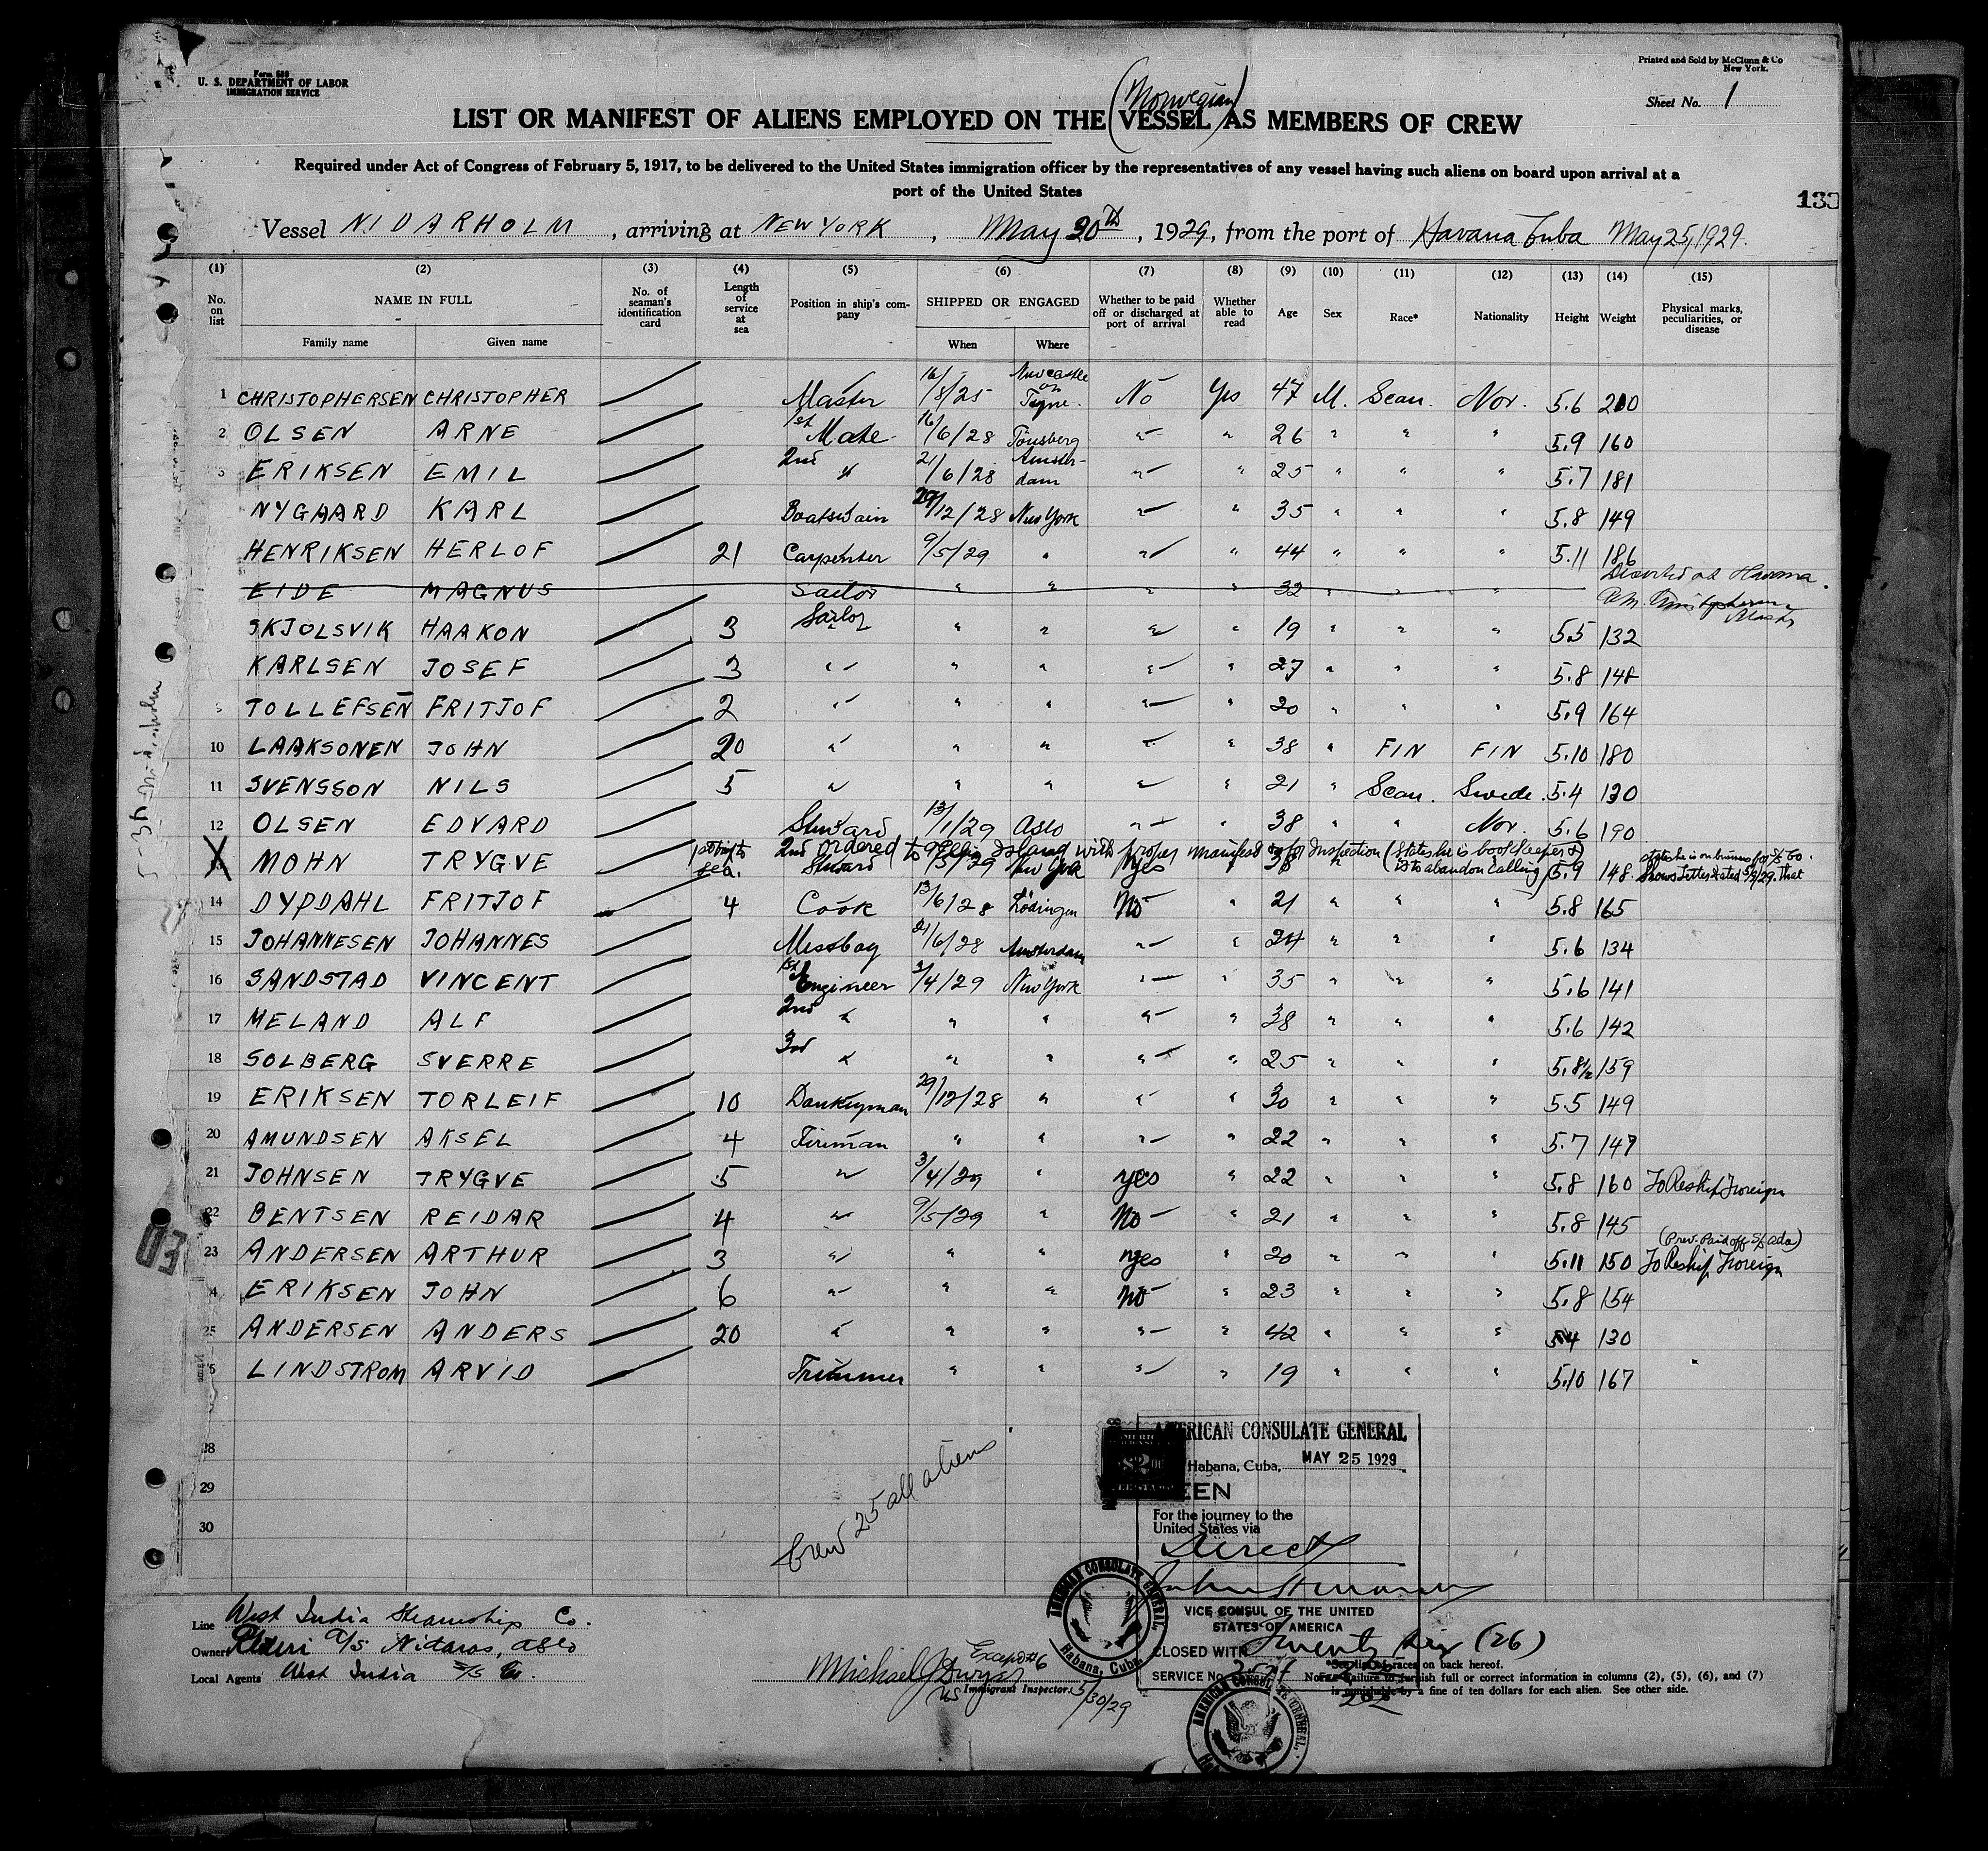 Form 689
U. S. DEPARTMENT OF LABOR
IMMIGRATION SERVICE
Printed and Sold by McClunn & Co
New York.
Sheet No. 1
(Norwegian)
LIST OR MANIFEST OF ALIENS EMPLOYED ON THE VESSEL AS MEMBERS OF CREW
Required under Act of Congress of February 5, 1917, to be delivered to the United States immigration officer by the representatives of any vessel having such aliens on board upon arrival at a
port of the United States
133
Vessel NIDARHOLM, arriving at NEW YORK, May 30th, 1929, from the port of Havana Cuba May 25, 1929.
(1) (2) (3) (4) (5) (6) (7) (8) (9) (10) (11) (12) (13) (14) (15)
No. on list
NAME IN FULL
Family name Given name
No. of seaman's identification card
Length of service at sea
Position in ship's company
SHIPPED OR ENGAGED
When Where
Whether to be paid off or discharged at port of arrival
Whether able to read
Age Sex Race* Nationality Height Weight
Physical marks, peculiarities, or disease
1 CHRISTOPHERSEN CHRISTOPHER Master 16/8/25 Newcastle on Tyne. No Yes 47 M. Scan. Nor. 5.6 200
2 OLSEN ARNE 1st Mate 16/6/28 Tönsberg " " 26 " " " 5.9 160
3 ERIKSEN EMIL 2nd " 21/6/28 Amsterdam " " 25 " " " 5.7 181
NYGAARD KARL Boatswain 29/12/28 New York " " 35 " " " 5.8 149
HENRIKSEN HERLOF 21 Carpenter 9/5/29 " " " 44 " " " 5.11 186
EIDE MAGNUS Sailor " " " " 32 " " " Deserted at Havana.
Master
SKJOLSVIK HAAKON 3 Sailor " " " " 19 " " " 5.5 132
KARLSEN JOSEF 3 " " " " " 27 " " " 5.8 148
9 TOLLEFSEN FRITJOF 2 " " " " " 20 " " " 5.9 164
10 LAAKSONEN JOHN 20 " " " " " 38 " FIN FIN 5.10 180
11 SVENSSON NILS 5 " " " " " 21 " Scan. Swede. 5.4 130
12 OLSEN EDVARD Steward 13/1/29 Oslo " " 38 " " Nor. 5.6 190
ordered to Ellis Island with proper manifest for Inspection (states he is bookkeeper &
is to abandon calling)
states he is on business for S/S Co.
Shows letter dated 5/9/29. that
X 13 MOHN TRYGVE 1st trip to sea. 2nd Steward 9/5/29 New York Yes 38 5.9 148.
14 DYPDAHL FRITJOF 4 Cook 13/6/28 Lödingen No " 21 " " " 5.8 165
15 JOHANNESEN JOHANNES Messboy 21/6/28 Amsterdam " " 24 " " " 5.6 134
16 SANDSTAD VINCENT 1st Engineer 3/4/29 New York " " 35 " " " 5.6 141
17 MELAND ALF 2nd " " " " " 38 " " " 5.6 142
18 SOLBERG SVERRE 3rd " " " " " 25 " " " 5.8½ 159
19 ERIKSEN TORLEIF 10 Donkeyman 29/12/28 " " " 30 " " " 5.5 149
20 AMUNDSEN AKSEL 4 Fireman " " " " 22 " " " 5.7 147
21 JOHNSEN TRYGVE 5 " 3/4/29 " yes " 22 " " " 5.8 160 To Reship Foreign
22 BENTSEN REIDAR 4 " 9/5/29 " No " 21 " " " 5.8 145
(Prev. Paid off S/S Ada)
23 ANDERSEN ARTHUR 3 " " " yes " 20 " " " 5.11 150 To Reship Foreign
24 ERIKSEN JOHN 6 " " " No " 23 " " " 5.8 154
25 ANDERSEN ANDERS 20 " " " " " 42 " " " 5.4 130
LINDSTROM ARVID Trimmer " " " " 19 " " " 5.10 167
28
29
30
Crew 25 all aliens
AMERICAN CONSULATE GENERAL
Habana, Cuba, MAY 25 1929
SEEN
For the journey to the
United States via
Direct
VICE CONSUL OF THE UNITED
STATES OF AMERICA
CLOSED WITH Twenty six (26)
SERVICE No.
AMERICAN CONSULATE GENERAL, Habana, Cuba.
AMERICAN CONSULATE GENERAL,
Line West India Steamship Co.
Owners Rederi A/S Nidaros, Oslo
Local Agents West India S/S Co.
Except #6
Michael J Dwyer
US Immigrant Inspector. 5/30/29
*See list of races on back hereof.
Note.—Failure to furnish full or correct information in columns (2), (5), (6), and (7)
is punishable by a fine of ten dollars for each alien. See other side.